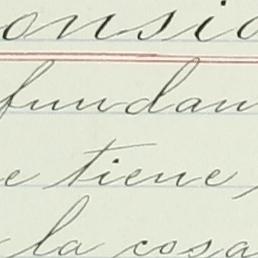 onsid
fundam
e tiene
la cosa